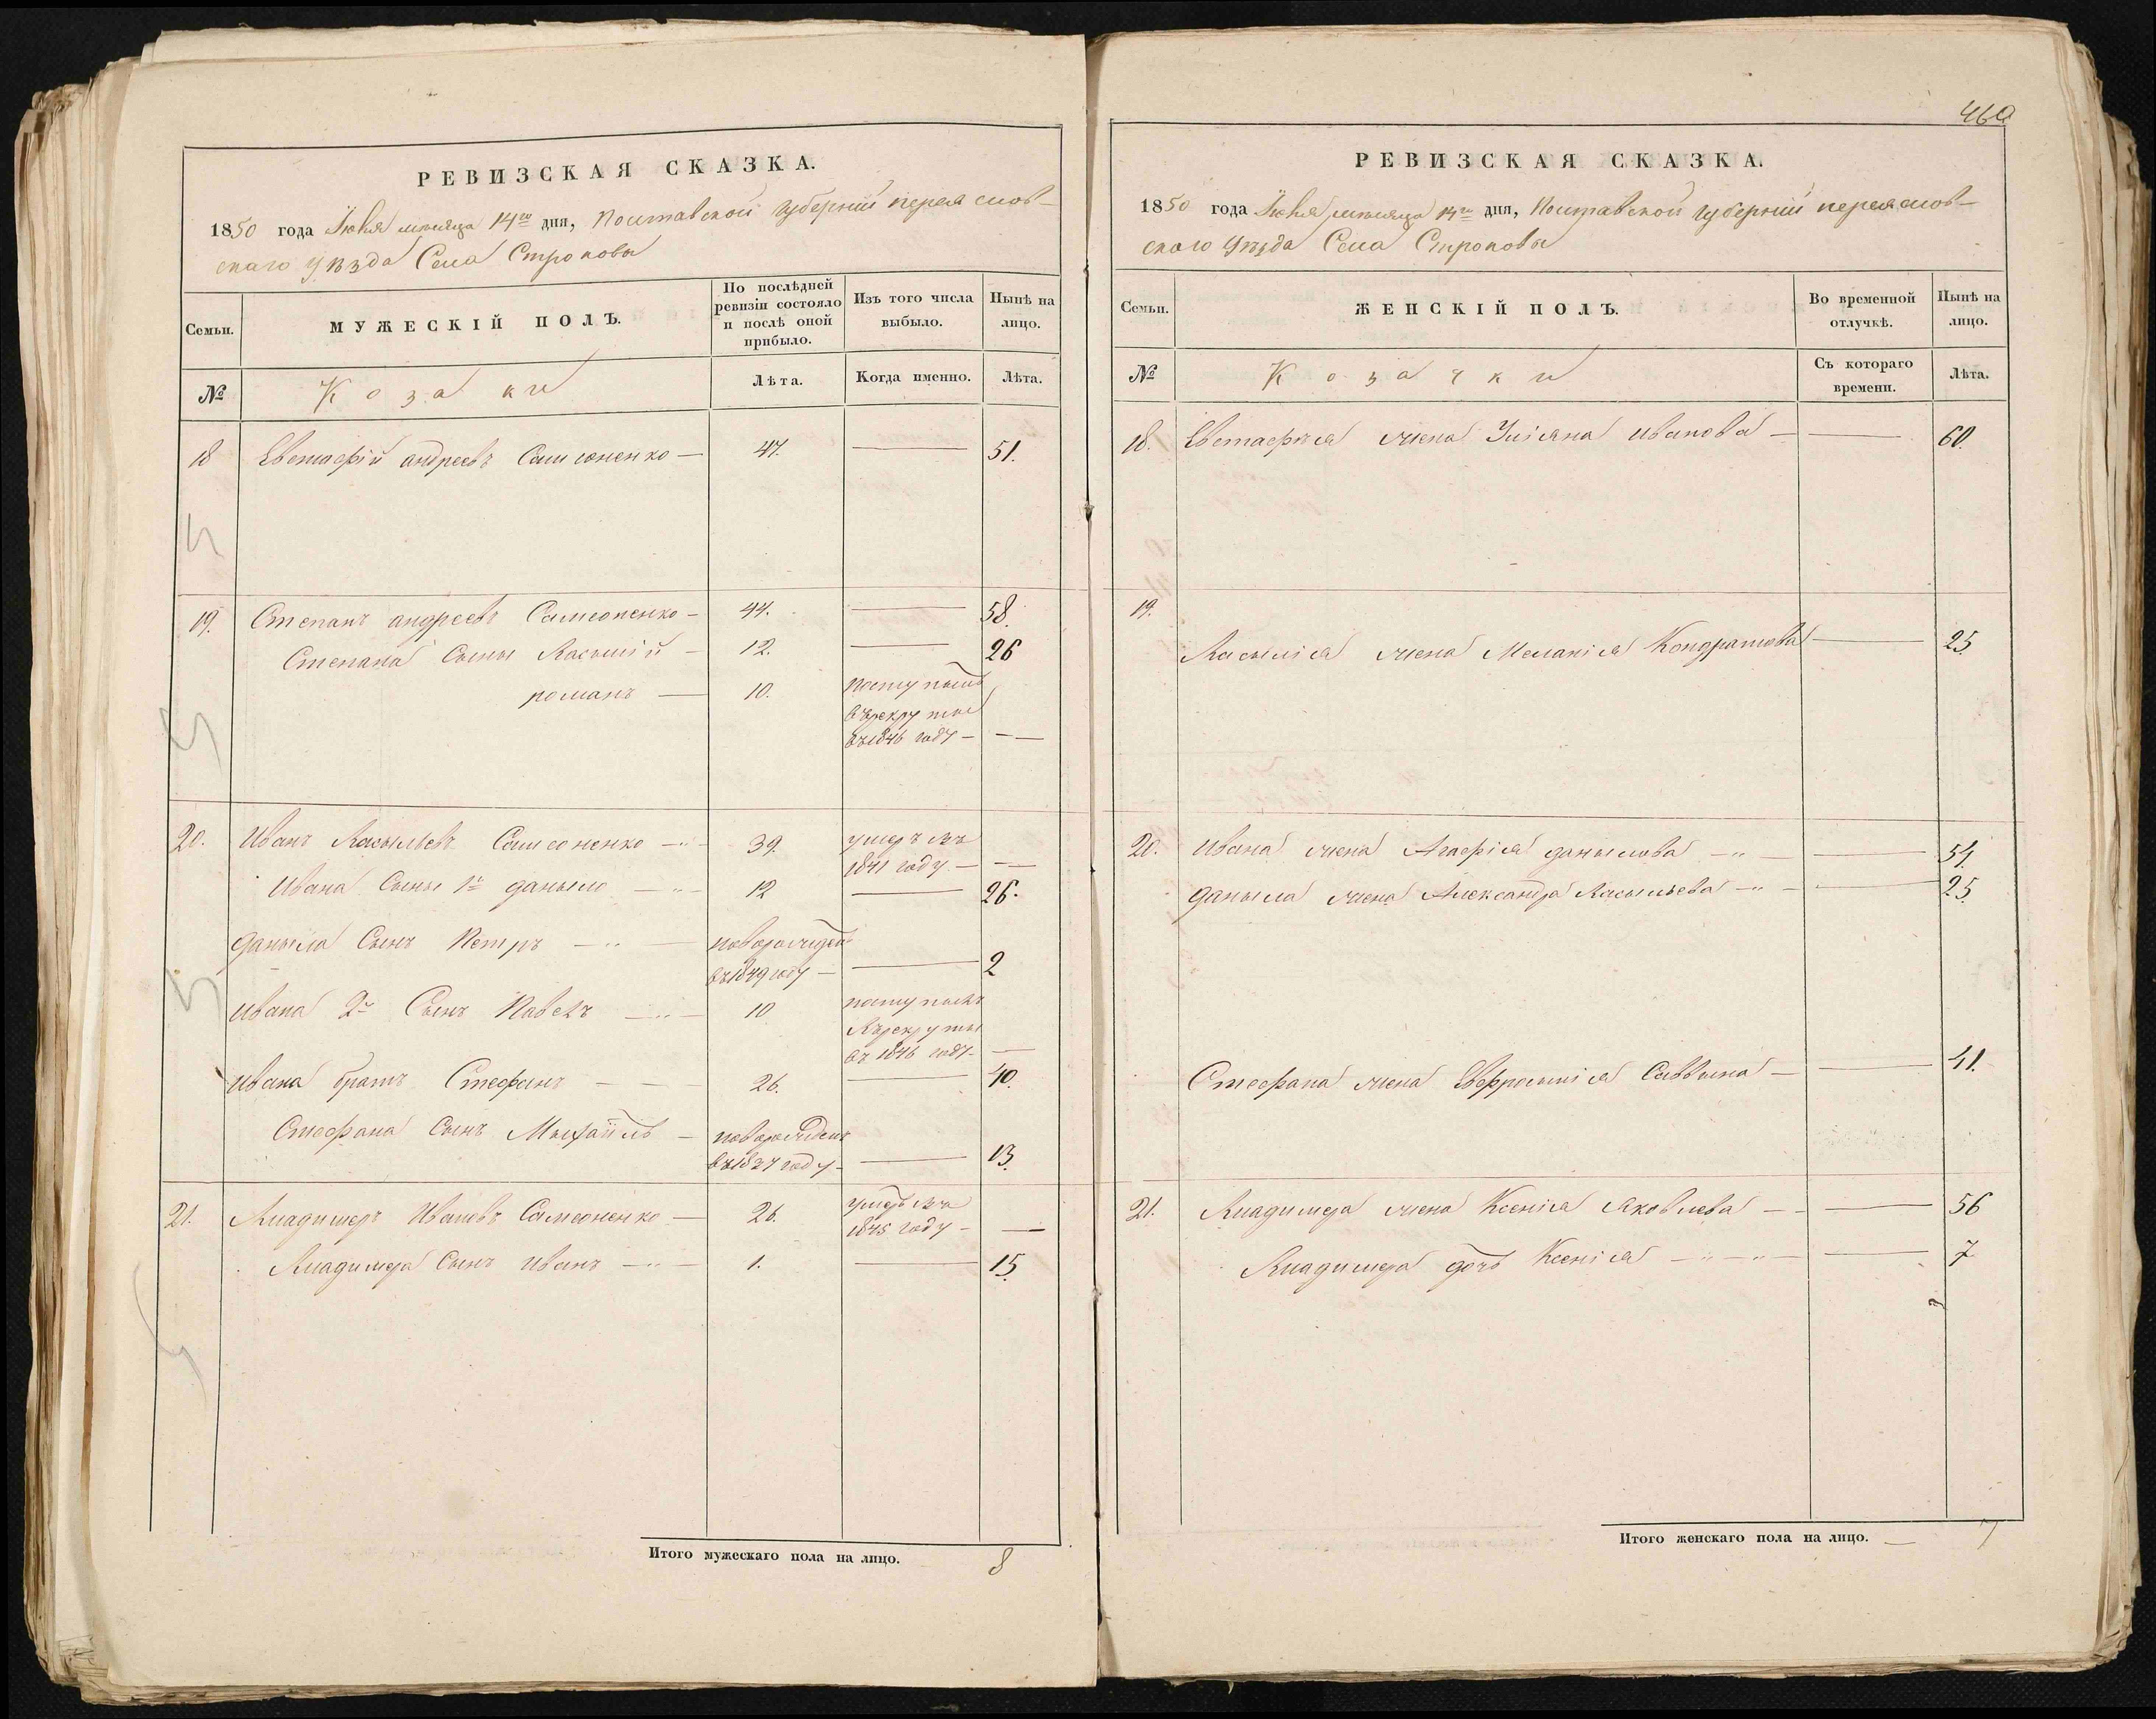 РЕВИЗСКАЯ СКАЗКА.
1850 года Іюня месяца 14го дня, Полтавской губерніи переяслов-
скаго уѣзда Села Строковы
Семьи.
МУЖЕСКІЙ ПОЛЪ.
По послѣдней ревизіи состояло и послѣ оной прибыло.
Изъ того числа выбыло.
Нынѣ на лицо.
№
Козаки
Лѣта.
Когда именно.
Лѣта.
18 Евстафій андреевъ Самсоненко — 47. — 51.
19. Степанъ андреевъ Самсоненко — 44. — 58.
Степана Сыны Василій — 12. — 26
романъ — 10. поступылъ
въ рекруты
въ 1846 году — —
20. Иванъ Васыльевъ Самсоненко — 39. умеръ въ
1841 году — —
Ивана Сыны 1й даныло — 12 — 26.
даныла Сынъ Петръ — новорожден
въ 1849 году — — 2
Ивана 2й Сынъ Павелъ — 10 поступылъ
въ рекруты
въ 1846 году — —
Ивана братъ Стефанъ — 26. — 40.
Стефана Сынъ Мыхайилъ — новорожденъ
въ 1837 году — — 13.
21. Владимеръ Ивановъ Самсоненко — 26. умеръ въ
1845 году — —
Владимера Сынъ Иванъ — 1. — 15.
Итого мужескаго пола на лицо. 8
460
РЕВИЗСКАЯ СКАЗКА.
1850 года Іюня месяца 14го дня, Полтавской губерніи переяслов-
скаго уѣзда Села Строковы
Семьи.
ЖЕНСКІЙ ПОЛЪ.
Во временной отлучкѣ.
Нынѣ на лицо.
№
Козачки
Съ котораго времени.
Лѣта.
18. Евстафія жена Уліяна Иванова — — 60.
19.
Василія жена Меланія Кондратова — 25.
20. Ивана жена Агафія данылова — — 54.
даныла жена Александра Васыльева — — 25.
Стефана жена Евфросинія Саввына — — 41.
21. Владимера жена Ксенія Яковлева — — 56
Владимера дочь Ксенія — — 7
Итого женскаго пола на лицо. — 7